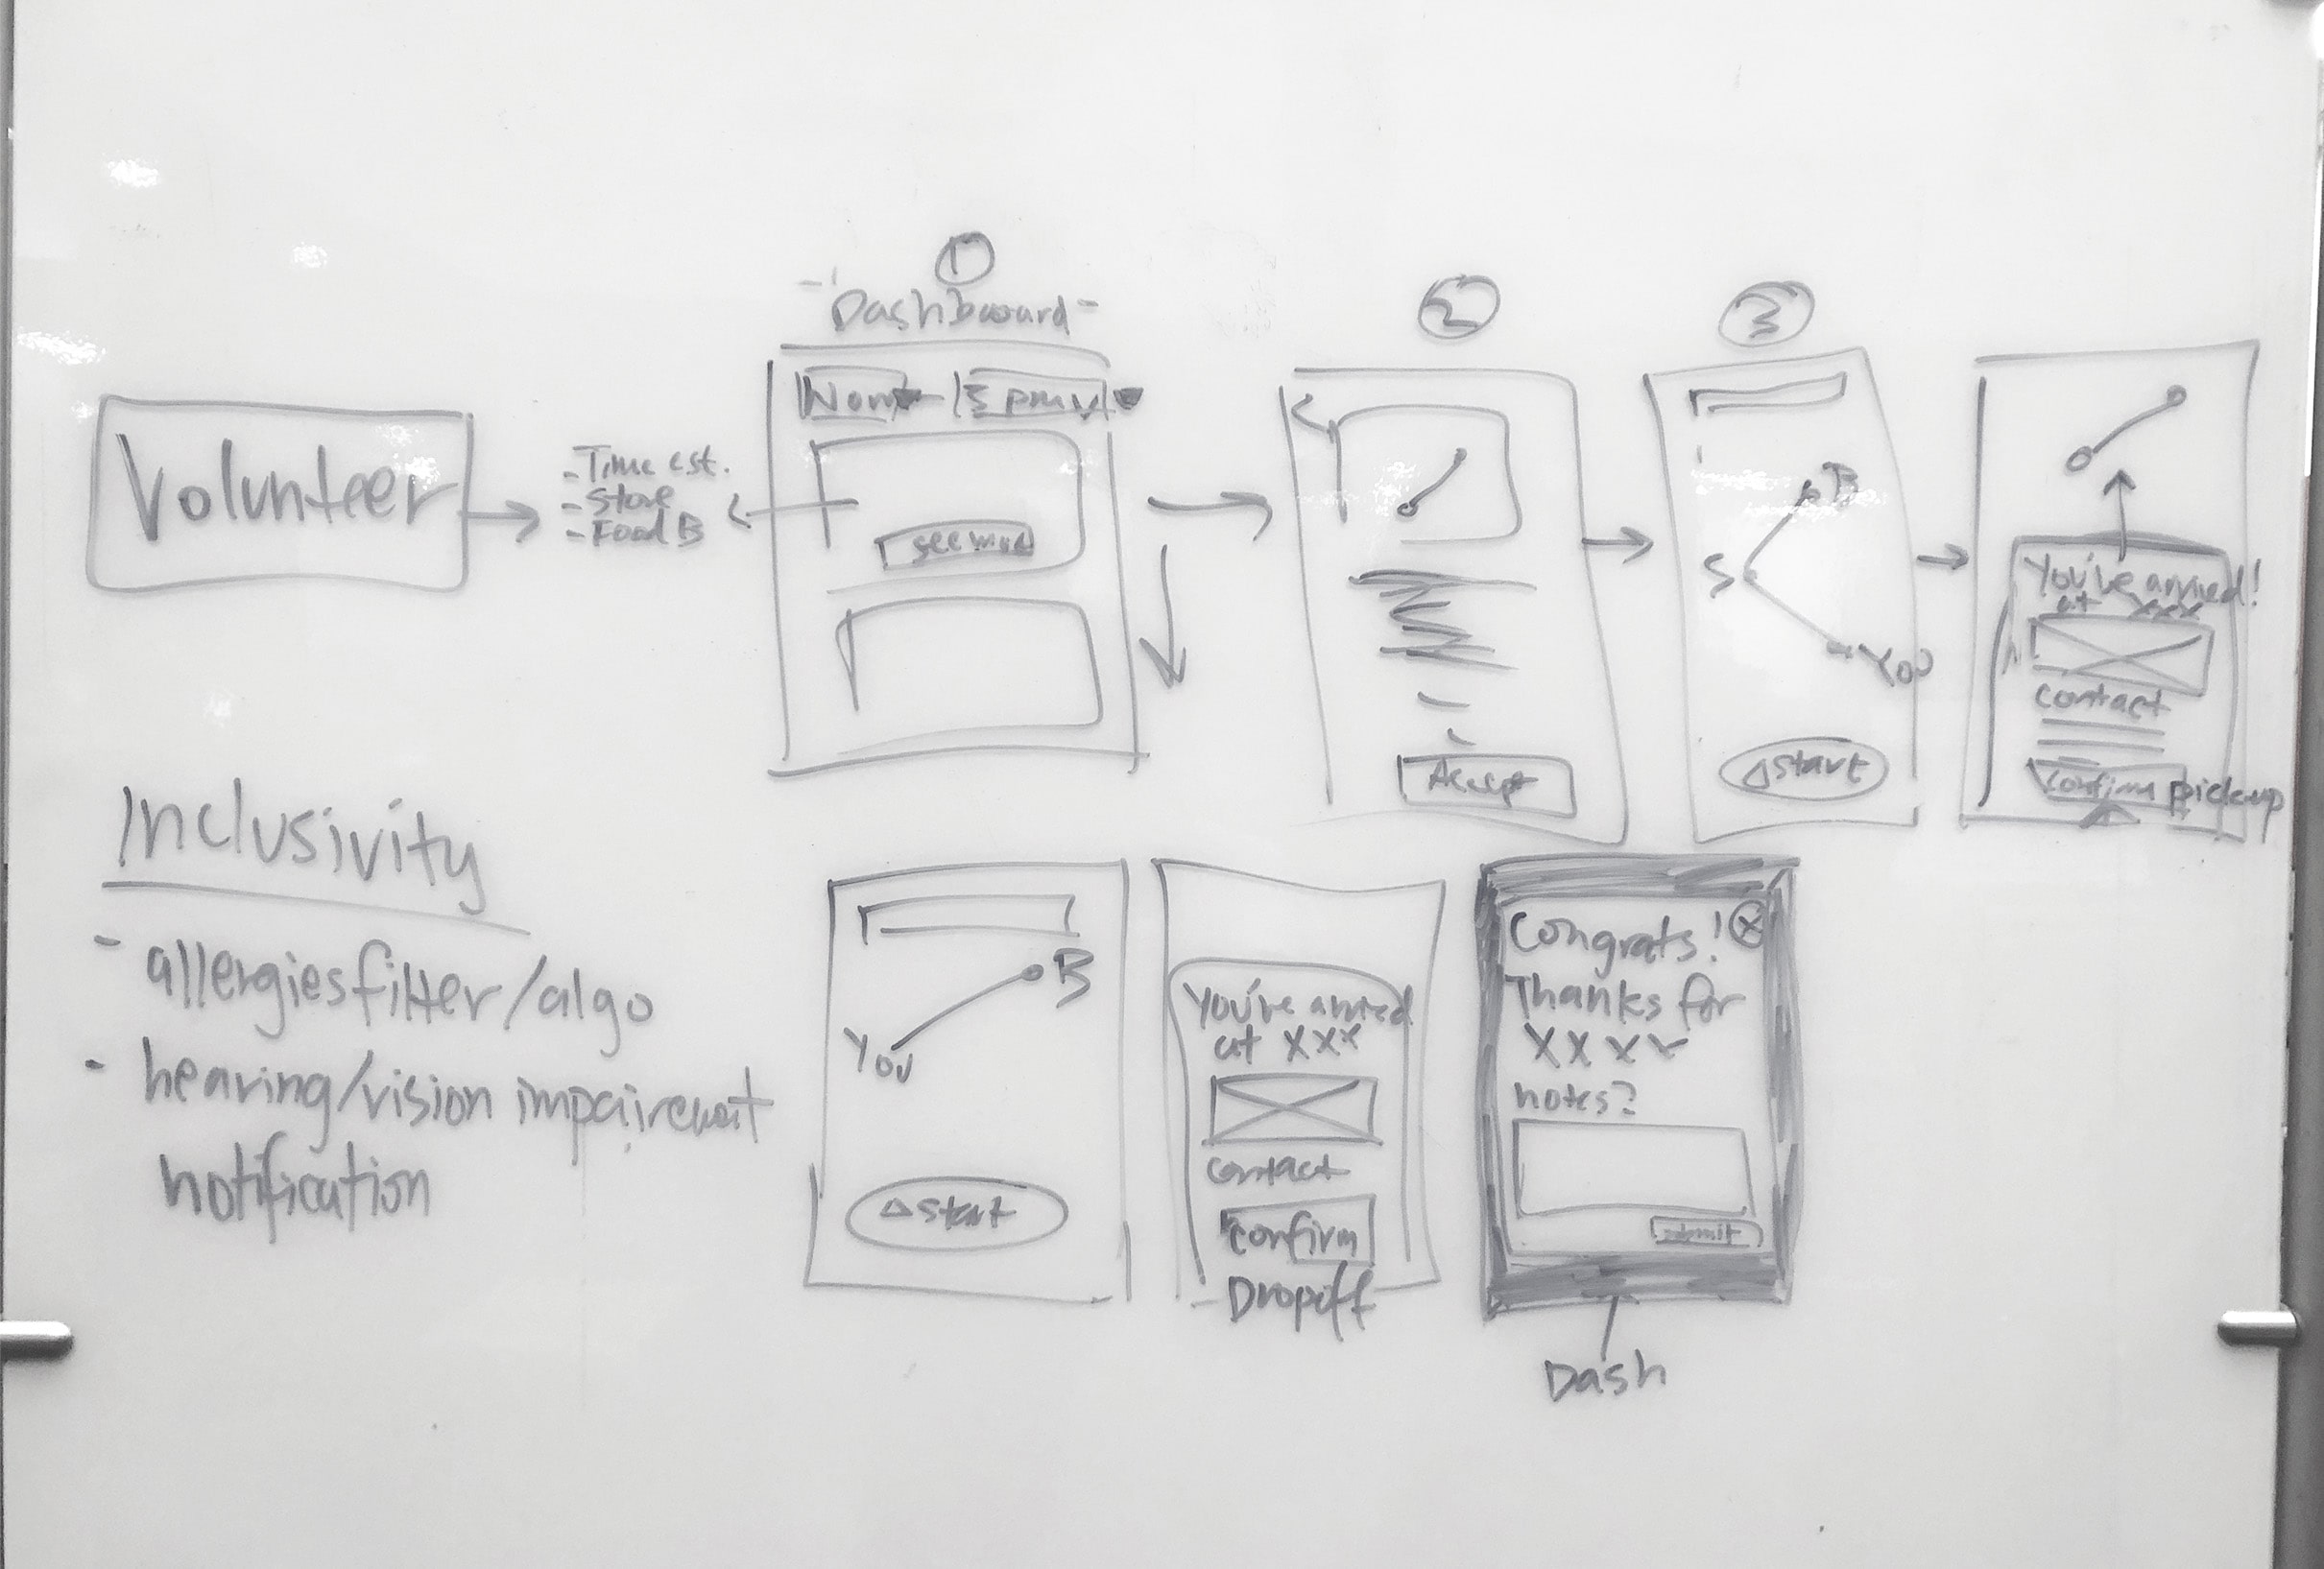 Volunteer
- Time est.
- Store
- Food B
1
- Dashboard -
Now
5 pm
see more
2
<
Accept
3
B
S
You
start
You've arrived!
at xxx
contact
confirm pickup
Inclusivity
- allergies filter/algo
- hearing/vision impairement
notification
B
You
start
You've arrived
at xxx
contact
confirm
Dropoff
Congrats! X
Thanks for
XXXX
notes?
submit
Dash